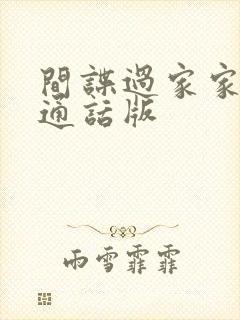 間諜過家家
通話版
雨雪霏霏